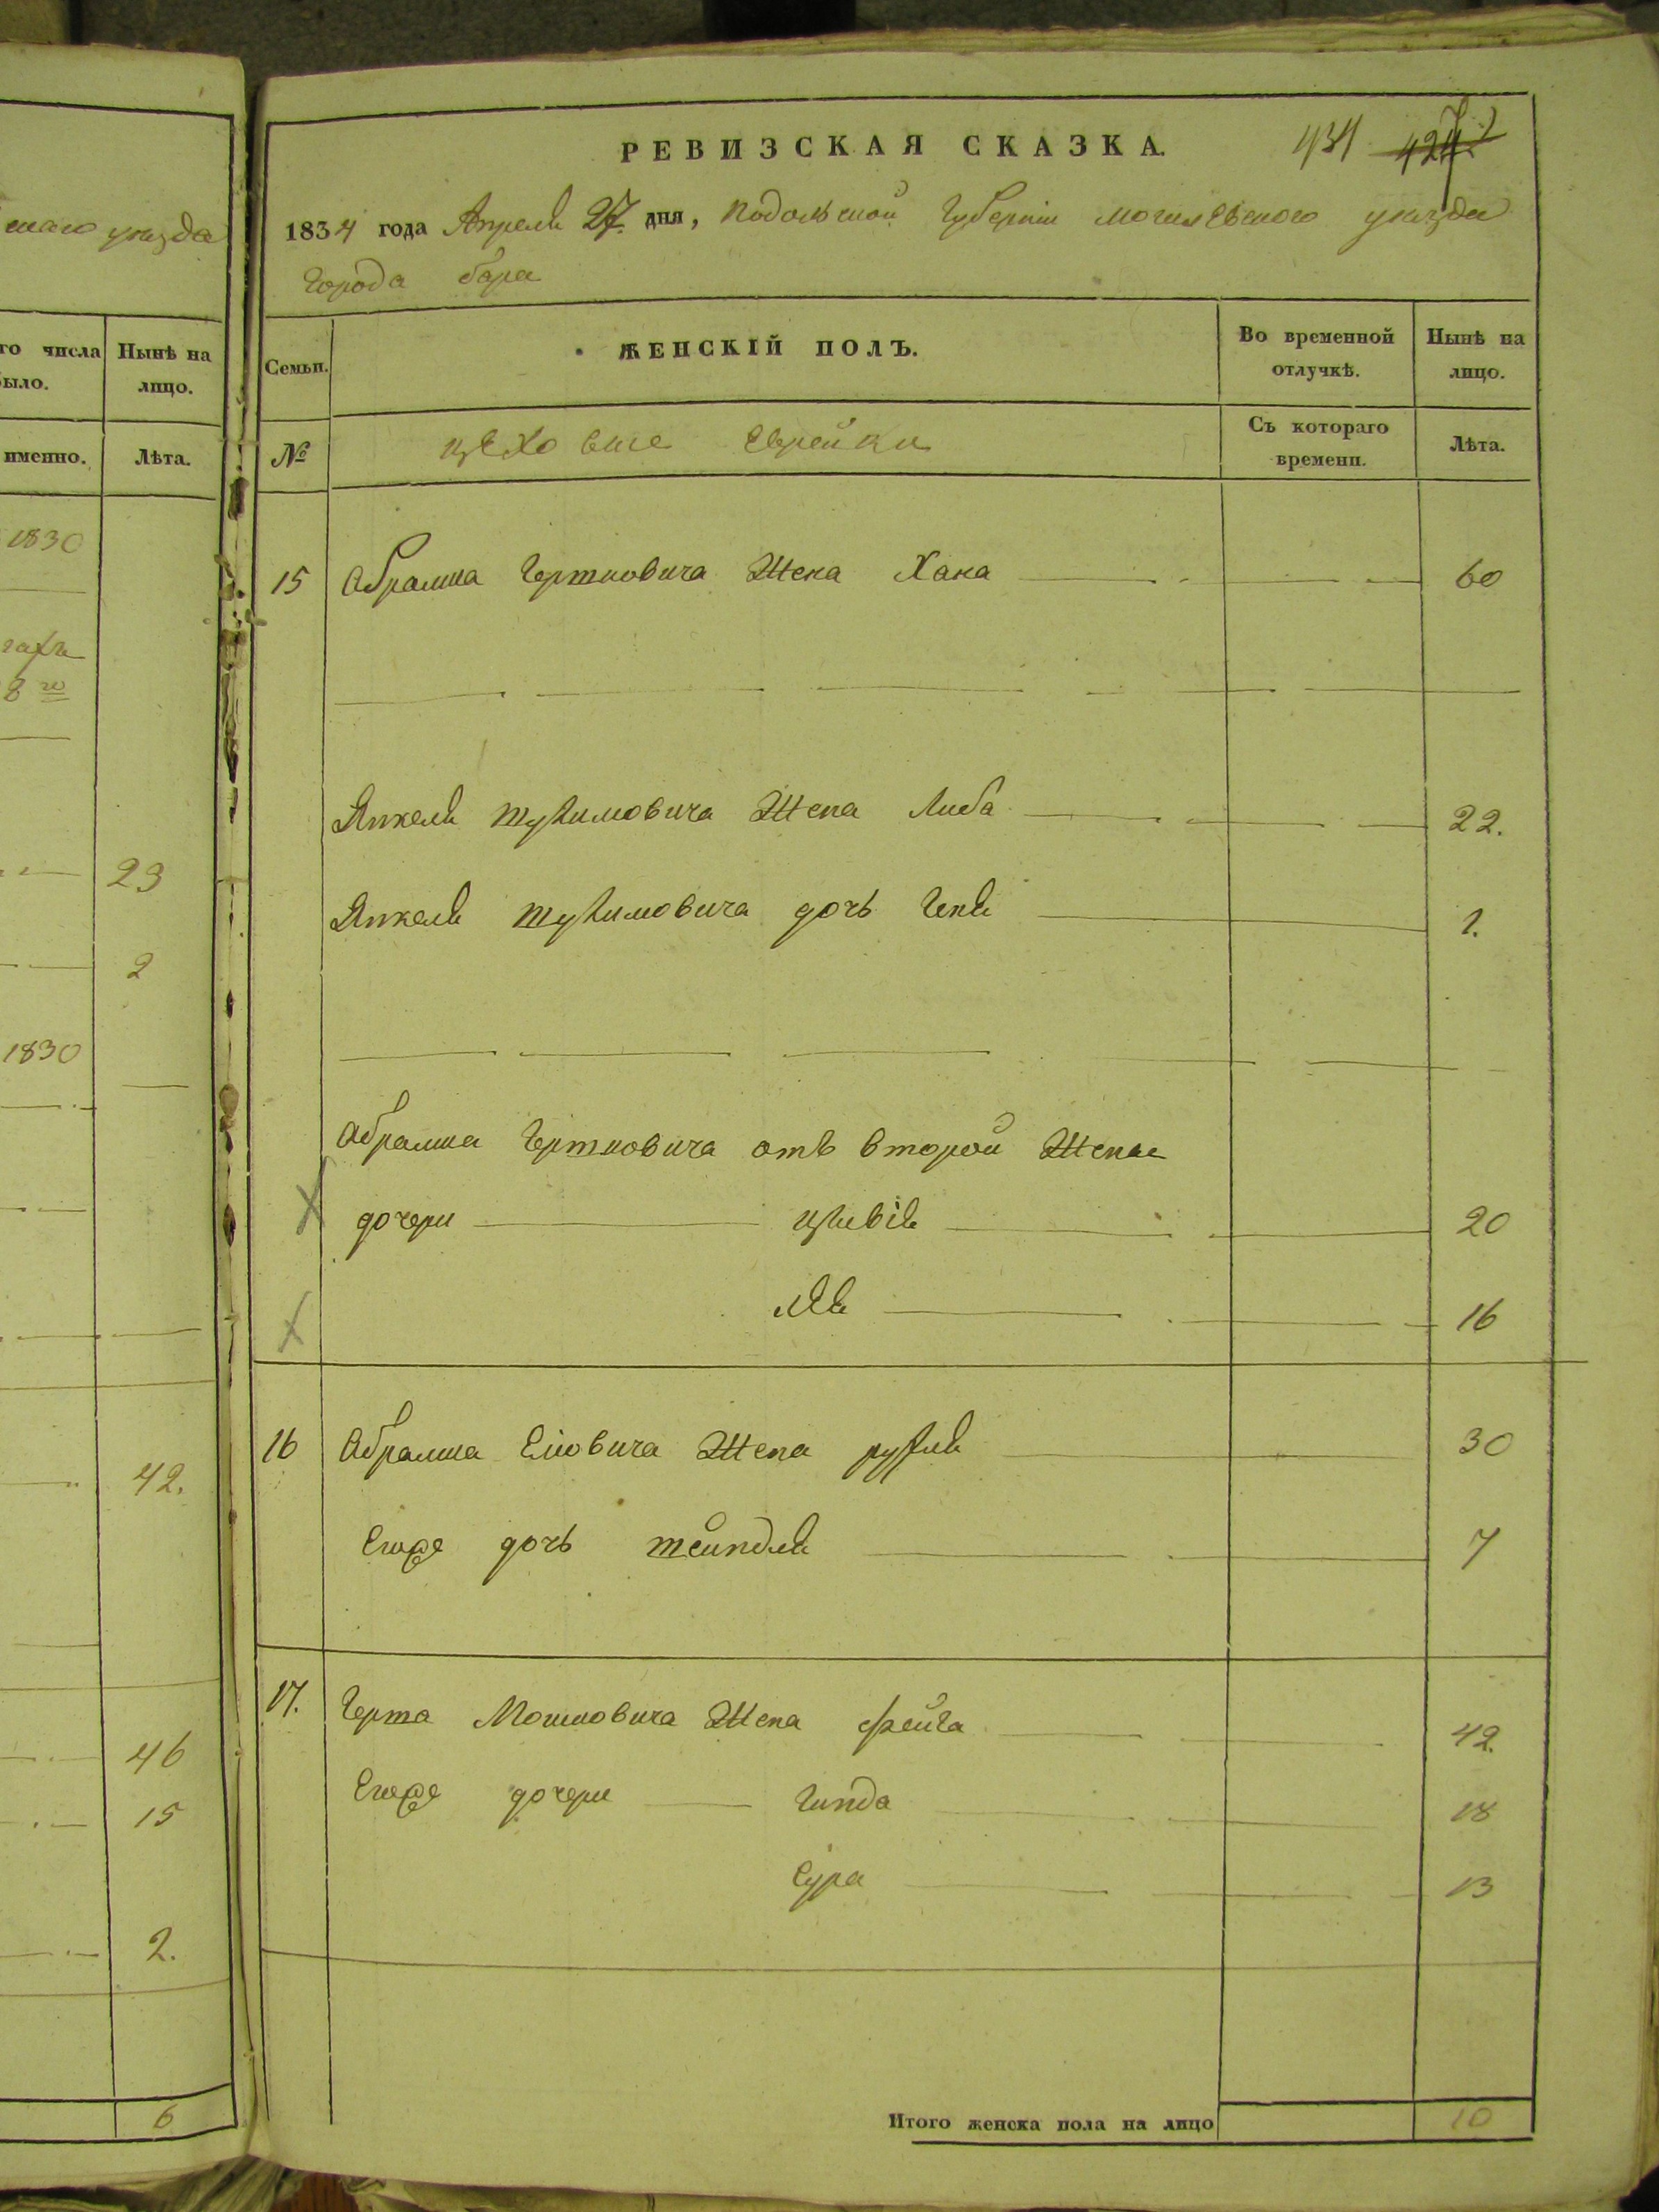 скаго уезда
го числа
было.
Нынѣ на
лицо.
именно.
Лѣта.
1830
8 го
23
2
1830
42.
46
15
2.
6
РЕВИЗСКАЯ СКАЗКА.
434 427
1834 года Апреля 27. дня, Подольской Губернiи Могилевского уезда
города бара
Семьи.
ЖЕНСКІЙ ПОЛЪ.
Во временной
отлучкѣ.
Нынѣ на
лицо.
№
цеховые Еврейки
Съ котораго
времени.
Лѣта.
15 Абрамка Гершковича Жена Хана 60
Янкеля Жена Либа 22.
Янкеля дочь Геня 1.
Абрамка Гершковича отъ второй Жены
дочери Цивiя 20
Лея 16
16 Абрамка Жена рухля 30
Егоже дочь шейндля 7
17. Герша Мошковича Жена фейга 42.
Егоже дочери Гинда 18
Сура 13
Итого женска пола на лицо 10